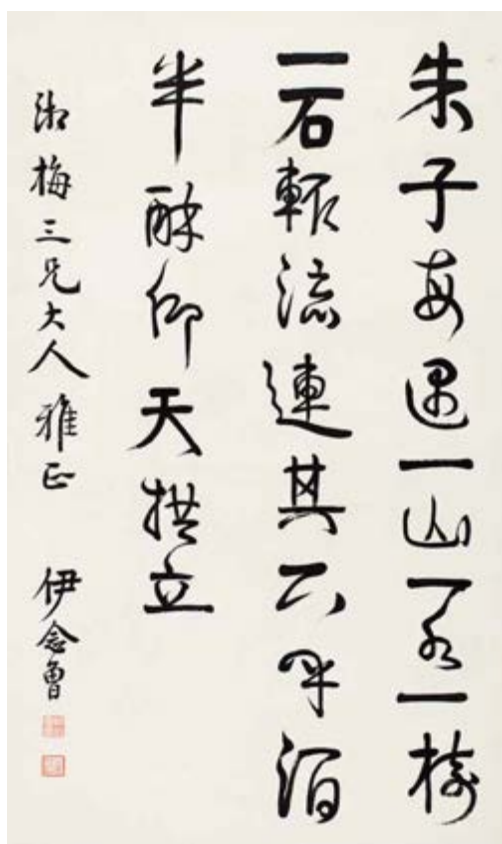 朱子每遇一山一水一樹
一石輒流連其下呼酒
半酥仰天拱立
湘梅三兄大人雅正 伊念曾